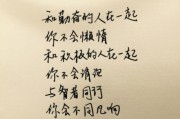 和勤奋的人在一起
你不会懒惰
和积极的人在一起
你不会消沉
与智者同行
你会不同凡响